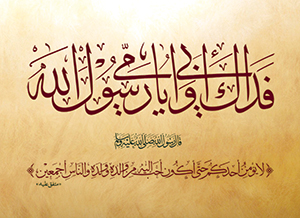 فداك أبي وأمي يا رسول الله
قال رسول الله صلى الله عليه وسلم
﴿ لا يؤمن أحدكم حتى أكون أحب إليه من والده وولده والناس أجمعين ﴾
«متفق عليه»